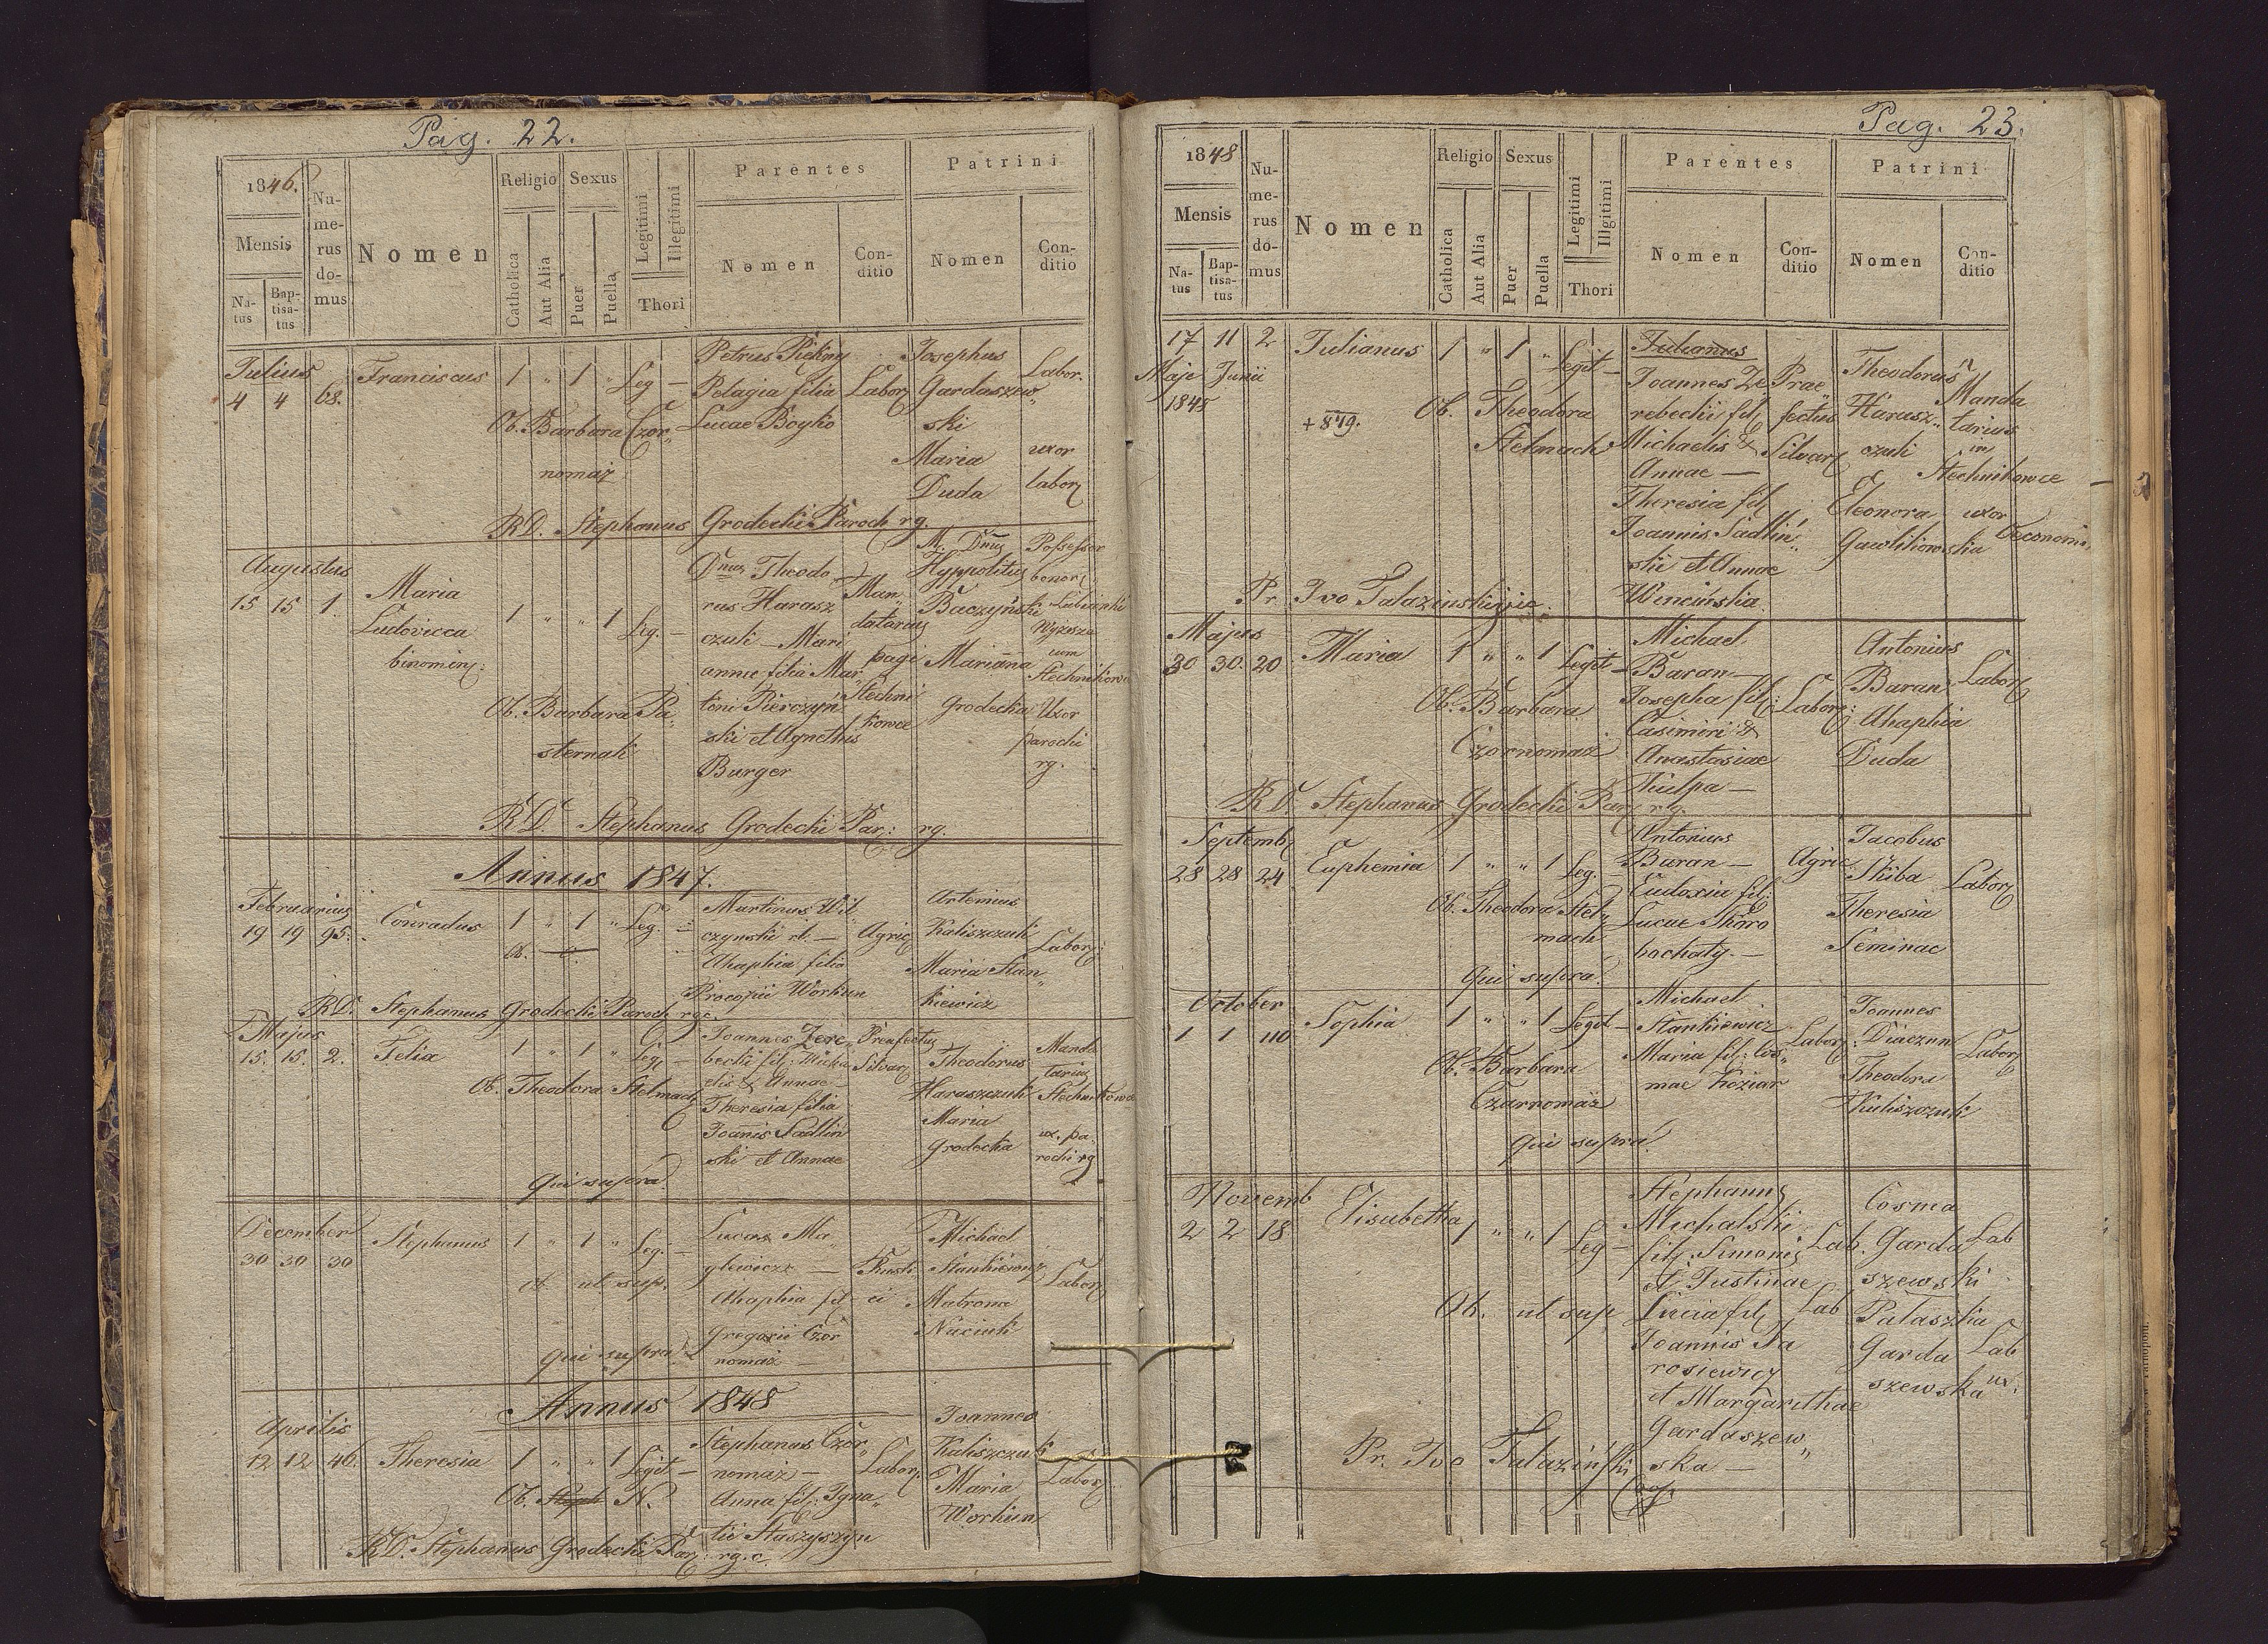 Pag. 22.
1846.
Mensis
Na-
tus
Bap-
tisa-
tus
Nu-
me-
rus
do-
mus
Nomen
Religio
Catholica
Aut Alia
Sexus
Puer
Puella
Legitimi
Illegitimi
Thori
Parentes
Nomen
Con-
ditio
Patrini
Nomen
Con-
ditio
Julius
4 4 68.
Franciscus
1 " 1 " Leg —
Ob. Barbara Czor„
nomaz
Petrus Piekny
Pelagia filia
Lucae Boyko
Labor
Josephus
Gardaszew„
ski
Maria
Duda
Labor.
uxor
labor
RD. Stephanus Grodecki Paroch rg.
Augustus
15 15 1.
Maria
Ludovicca
binomin:
1 " " 1 Leg. —
Ob. Barbara Pa„
sternak
Dnus Theodo
rus Harasz
czuk — Mari
annae filia Mar
toni Pierczyń
ski et Agnethis
Burger
Man
datarius
pagi
Stechni
kowce
M. Dnus
Hyppolitus
Baczyński
Marianna
Grodecka
Possessor
bonor.
Wyższa
cum
Uxor
parochi
rg.
RD. Stephanus Grodecki Par: rg.
Annus 1847.
Februarius
19 19 95.
Conradus
1 " 1 " Leg. —
Ob. —
Martinus Wil
czynski rl. —
Ahaphia filia
Procopii Workun
Agric
Artemius
Kaliszczuk
Maria Stan„
kiewicz
Labor:
RD. Stephanus Grodecki Paroch rgc.
Majus
15. 15. 2.
Felix
1 " 1 " Leg —
Ob. Theodora Stelmach
Joannes Zere„
becki fil: Micha
elis & Annae —
Theresia filia
Joanis Sadlin
ski et Annae
Praefectus
Silvar
Theodorus
Haraszczuk
Maria
Grodecka
Manda
tarius
Stechnikowce
ux. pa„
rochi rg
Qui supra
December
30 30 30
Stephanus
1 " 1 " Leg. —
Ob. ut sup.
Lucas Ma„
glewicz —
Ahaphia fil
Gregorii Czor
nomaz —
Rusti
ci
Michael
Stankiewicz
Matrona
Naciuk
Labor
Qui supra
Annus 1848
Aprilis
12 12 46.
Theresia
1 " " 1 Legit —
Ob. Steph N.
Stephanus Czor„
nomaz —
Anna fil: Igna„
tii Staszyszyn
Labor
Joannes
Kaliszczuk
Maria
Workun
Labor
RD. Stephanus Grodecki Par: rg.c.
Pag. 23.
1848
Mensis
Na-
tus
Bap-
tisa-
tus
Nu-
me-
rus
do-
mus
Nomen
Religio
Catholica
Aut Alia
Sexus
Puer
Puella
Legitimi
Illgitimi
Thori
Parentes
Nomen
Con-
ditio
Patrini
Nomen
Con-
ditio
17 11 2
Maje Junii
1848
Julianus
+ 849.
1 " 1 " Legit —
Ob. Theodora
Stelmach
Julianus
Joannes Ze
rebecki fil
Michaelis &
Annae —
Theresia fil
Joannis Sadlin„
ski et Annae
Wincińska
Prae„
fectus
Silvar
Theodorus
Harasz„
czuk
Eleonora
Gawlikowska
Manda
tarius
in
Stechnikowce
uxor
Oeconomi
Pr. Ivo Talazinski
Majus
30 30. 20
Maria
1 " " 1 Legit —
Ob. Barbara
Czornomaz
Michael
Baran —
Josepha fil:
Casimiri &
Anastasiae
Kulpa —
Labor:
Antonius
Baran
Ahaphia
Duda
Labor
RD. Stephanus Grodecki Par rg.
Septemb
28 28 24
Euphemia
1 " " 1 Leg. —
Ob. Theodora Stel„
mach
Antonius
Baran —
Eudoxia fil:
Lucae Skoro
bochaty. —
Agric
Jacobus
Skiba
Theresia
Seminac
Labor
Qui supra.
October
1 1 110
Sophia
1 " " 1 Legit —
Ob. Barbara
Czarnomaz
Michael
Stankiewicz
Maria fil: Cos„
mae Koziar
Labor
Joannes
Diaczun
Theodora
Kaliszczuk
Labor
Qui supra
Novemb
2 2 18.
Elisabetha
1 " " 1 Leg —
Ob. ut sup
Stephanus
Michalski
fil. Simonis
et Justinae
Lucia fil
Joannis Ja
rosiewicz
et Margarithae
Gardaszew„
ska —
Lab.
Lab
Cosma
Garda
szewski
Palaszka
Garda
szewska
Lab
Lab
ux.
Pr. Ivo Talaziński